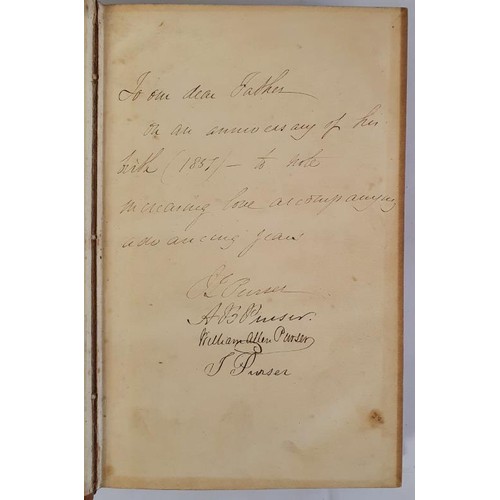 To our dear Father
on an anniversary of his
birth (1857) – to note
increasing love accompanying
advancing years
Purser
A B Purser.
William Allen Purser
J Purser